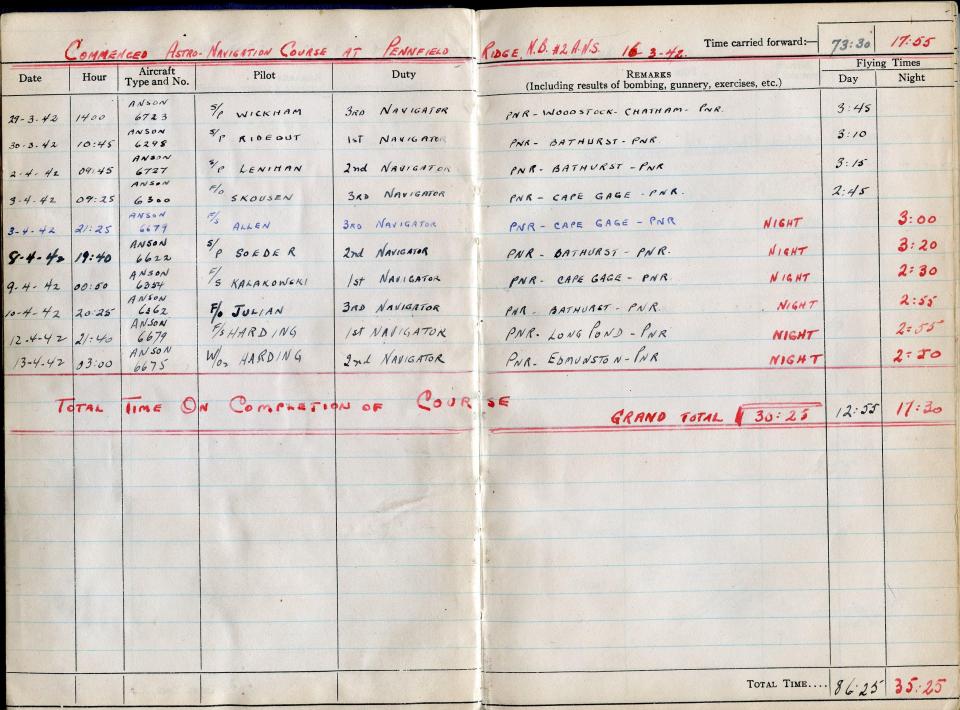 COMMENCED ASTRO-NAVIGATION COURSE AT PENNFIELD RIDGE, N.B. #2 A.N.S. 16-3-42. Time carried forward:— 73:30 17:55
Date Hour Aircraft Type and No. Pilot Duty REMARKS (Including results of bombing, gunnery, exercises, etc.) Flying Times Day Night
29-3-42 1400 ANSON 6723 S/P WICKHAM 3RD NAVIGATOR PNR-WOODSTOCK-CHATHAM-PNR. 3:45
30-3-42 10:45 ANSON 6298 S/P RIDEOUT 1ST NAVIGATOR PNR-BATHURST-PNR. 3:10
2-4-42 09:45 ANSON 6727 S/P LENIHAN 2nd NAVIGATOR PNR-BATHURST-PNR 3:15
3-4-42 09:25 ANSON 6300 F/O SKOUSEN 3RD NAVIGATOR PNR-CAPE GAGE-PNR. 2:45
3-4-42 21:25 ANSON 6679 F/S ALLEN 3RD NAVIGATOR PNR-CAPE GAGE-PNR NIGHT 3:00
8-4-42 19:40 ANSON 6622 S/P SOEDER 2nd NAVIGATOR PNR-BATHURST-PNR. NIGHT 3:20
9-4-42 00:50 ANSON 6354 F/S KALAKOWSKI 1ST NAVIGATOR PNR-CAPE GAGE-PNR. NIGHT 2:30
10-4-42 20:25 ANSON 6362 F/O JULIAN 3RD NAVIGATOR PNR-BATHURST-PNR. NIGHT 2:55
12-4-42 21:40 ANSON 6679 F/S HARDING 1ST NAVIGATOR PNR-LONG POND-PNR NIGHT 2:55
13-4-42 03:00 ANSON 6675 W/O2 HARDING 2nd NAVIGATOR PNR-EDMUNSTON-PNR NIGHT 2:50
TOTAL TIME ON COMPLETION OF COURSE
GRAND TOTAL 30:25 12:55 17:30
TOTAL TIME.... 86:25 35:25